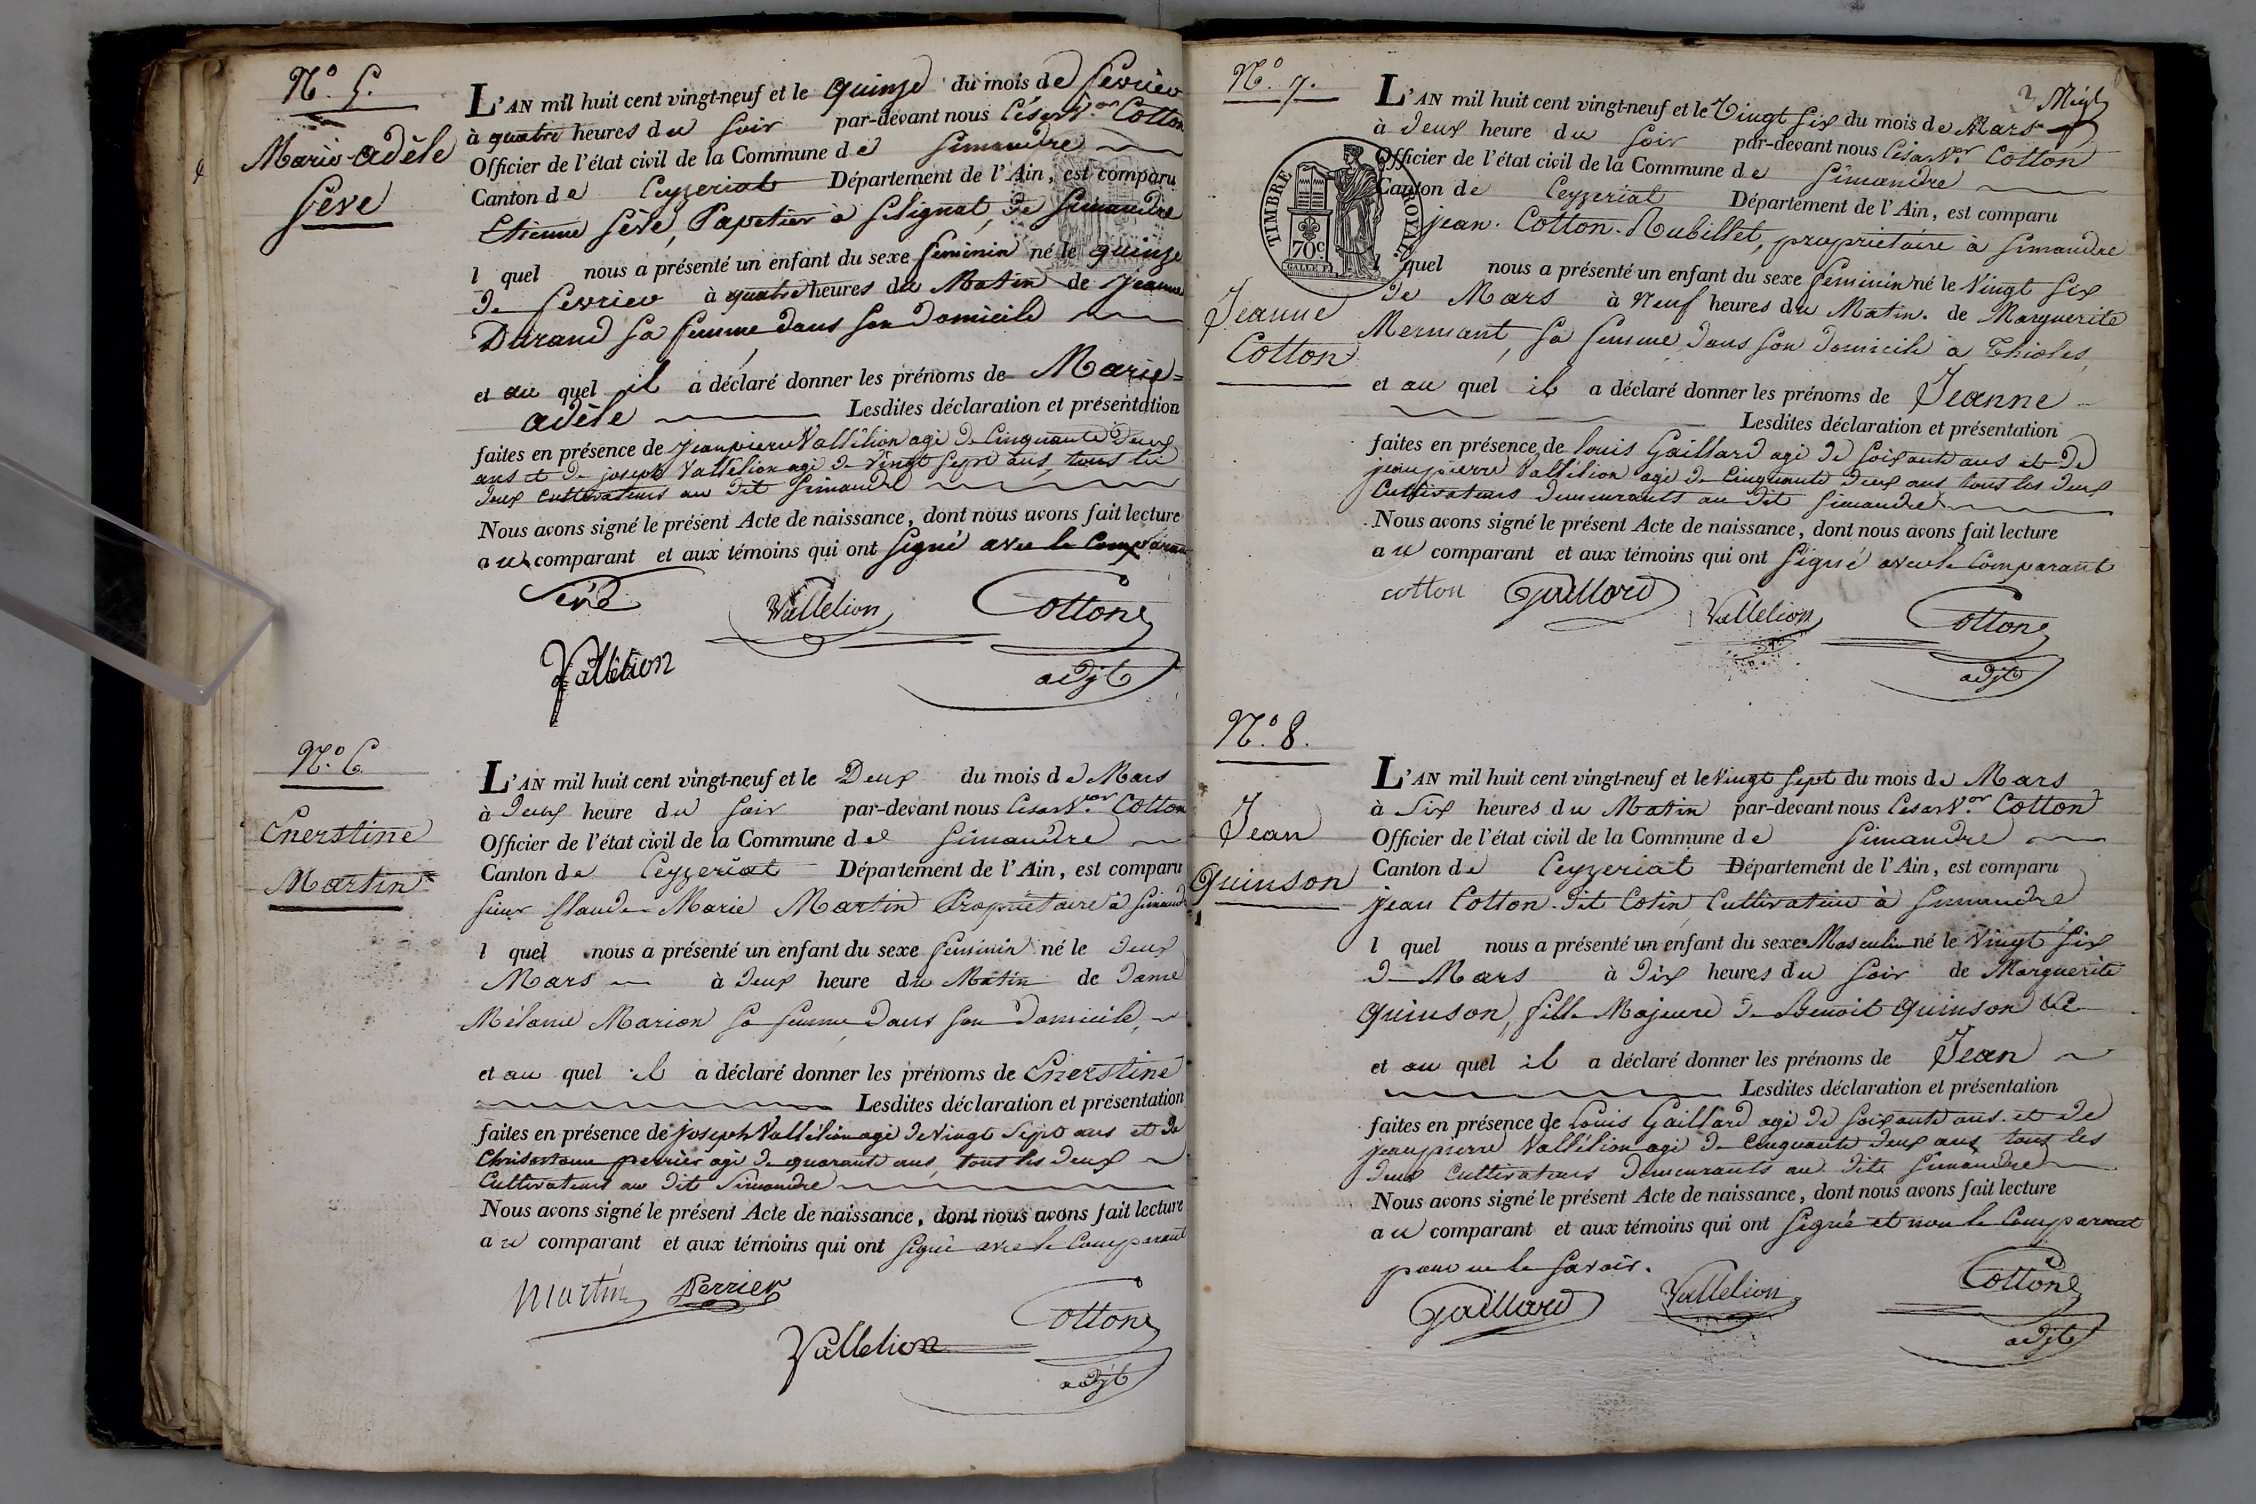 N.° 5.
Marie-adèle
Sève
L'AN mil huit cent vingt-neuf et le quinze du mois de fevrier
à quatre heures du soir par-devant nous César V.or Cotton
Officier de l'état civil de la Commune de Simandre
Canton de Ceyzeriat Département de l'Ain, est comparu
Etienne Sève, Papetier à Selignat, de Simandre
l quel nous a présenté un enfant du sexe feminin né le quinze
de fevrier à quatre heures du Matin de jeanne
Durand sa femme dans son domicile
et au quel il a déclaré donner les prénoms de Marie=
adèle Lesdites déclaration et présentation
faites en présence de jeanpierre Vallélion agé de Cinquante deux
ans et de joseph Vallélion agé de vingt sept ans, tous les
deux cultivateurs au dit Simandre
Nous avons signé le présent Acte de naissance, dont nous avons fait lecture
au comparant et aux témoins qui ont signé avec le Comparant
Sève
Vallelion
Cotton
Vallélion
adjt
N.° 6.
Enerstine
Martin
L'AN mil huit cent vingt-neuf et le Deux du mois de Mars
à deux heure du soir par-devant nous César V.or Cotton
Officier de l'état civil de la Commune de Simandre
Canton de Ceyzeriat Département de l'Ain, est comparu
sieur Claude Marie Martin Propriétaire à Simand
l quel nous a présenté un enfant du sexe feminin né le deux
Mars à deux heure du Matin de dame
Mélanie Marion sa femme, dans son domicile,
et au quel il a déclaré donner les prénoms de Enerstine
Lesdites déclaration et présentation
faites en présence de joseph Vallélion agé de vingt sept ans et de
Chrisostome perrier agé de quarante ans, tous les deux
Cultivateurs au dit Simandre
Nous avons signé le présent Acte de naissance, dont nous avons fait lecture
au comparant et aux témoins qui ont signé avec le Comparant
Martin
Perrier
Cotton
Vallelion
adjt
N.° 7.
Jeanne
Cotton
TIMBRE ROYAL
70c
L'AN mil huit cent vingt-neuf et le Vingt six du mois de Mars
à deux heure du soir par-devant nous César V.or Cotton
Officier de l'état civil de la Commune de Simandre
Canton de Ceyzeriat Département de l'Ain, est comparu
jean. Cotton. Rubillet, propriétaire à Simandre
l quel nous a présenté un enfant du sexe feminin né le Vingt six
de Mars à Neuf heures du Matin. de Marguerite
Mermant, sa femme dans son domicile à Thioles,
et au quel il a déclaré donner les prénoms de Jeanne
Lesdites déclaration et présentation
faites en présence de louis Gaillard agé de soixante ans et de
jeanpierre Vallélion agé de Cinquante deux ans tous les deux
Cultivateurs demeurants au dit Simandre
Nous avons signé le présent Acte de naissance, dont nous avons fait lecture
au comparant et aux témoins qui ont signé avec le Comparant
cotton
Gaillard
Vallelion
Cotton
adjt
N.° 8.
Jean
Quinson
L'AN mil huit cent vingt-neuf et le Vingt sept du mois de Mars
à Six heures du Matin par-devant nous César V.or Cotton
Officier de l'état civil de la Commune de Simandre
Canton de Ceyzeriat Département de l'Ain, est comparu
jean Cotton dit Cotin, Cultivateur à Simandre
l quel nous a présenté un enfant du sexe Masculin né le Vingt six
de Mars à dix heures du soir de Marguerite
Quinson, fille Majeure de Benoit Quinson &c
et au quel il a déclaré donner les prénoms de Jean
Lesdites déclaration et présentation
faites en présence de Louis Gaillard agé de soixante ans et de
jeanpierre Vallélion agé de Cinquante deux ans, tous les
deux cultivateurs demeurants au dite Simandre
Nous avons signé le présent Acte de naissance, dont nous avons fait lecture
au comparant et aux témoins qui ont signé et non le Comparant
pour ne le savoir.
Gaillard
Vallelion
Cotton
adjt